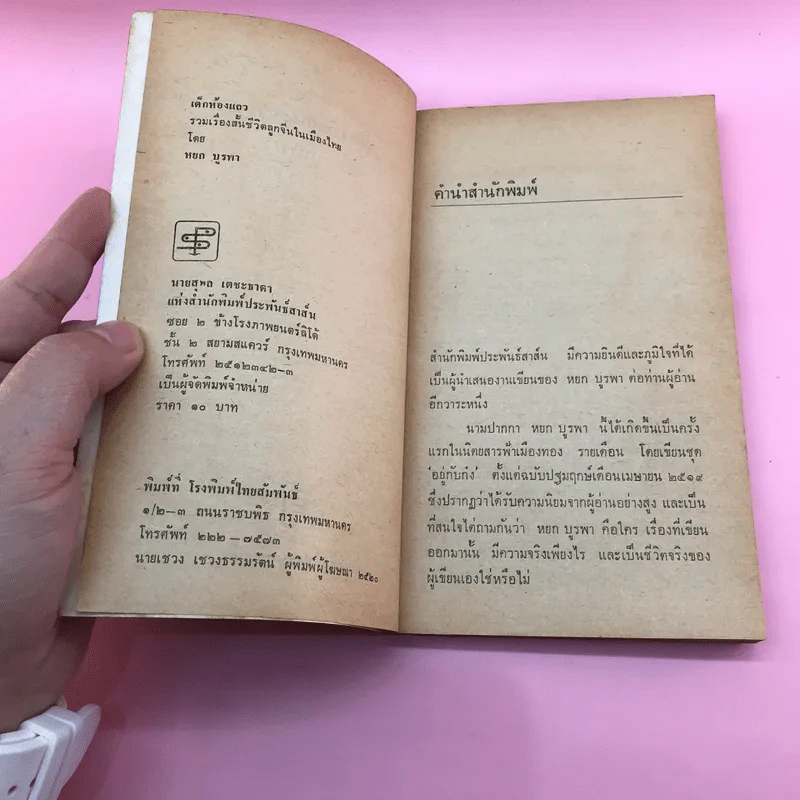 เด็กห้องแถว
รวมเรื่องสั้นชีวิตลูกจีนในเมืองไทย
โดย
หยก บูรพา
นายสุพล เตชะธาดา
แห่งสำนักพิมพ์ประพันธ์สาส์น
ซอย ๒ ข้างโรงภาพยนตร์ลิโด้
ชั้น ๒ สยามสแควร์ กรุงเทพมหานคร
โทรศัพท์ ๒๕๑๒๓๔๒–๓
เป็นผู้จัดพิมพ์จำหน่าย
ราคา ๑๐ บาท
พิมพ์ที่ โรงพิมพ์ไทยสัมพันธ์
๑/๒–๓ ถนนราชบพิธ กรุงเทพมหานคร
โทรศัพท์ ๒๒๒–๗๕๗๓
นายเชวง เชวงธรรมรัตน์ ผู้พิมพ์ผู้โฆษณา ๒๕๒๐
คำนำสำนักพิมพ์
สำนักพิมพ์ประพันธ์สาส์น มีความยินดีและภูมิใจที่ได้
เป็นผู้นำเสนองานเขียนของ หยก บูรพา ต่อท่านผู้อ่าน
อีกวาระหนึ่ง
นามปากกา หยก บูรพา นี้ได้เกิดขึ้นเป็นครั้ง
แรกในนิตยสารฟ้าเมืองทอง รายเดือน โดยเขียนชุด
'อยู่กับก๋ง' ตั้งแต่ฉบับปฐมฤกษ์เดือนเมษายน ๒๕๑๙
ซึ่งปรากฏว่าได้รับความนิยมจากผู้อ่านอย่างสูง และเป็น
ที่สนใจไต่ถามกันว่า หยก บูรพา คือใคร เรื่องที่เขียน
ออกมานั้น มีความจริงเพียงไร และเป็นชีวิตจริงของ
ผู้เขียนเองใช่หรือไม่